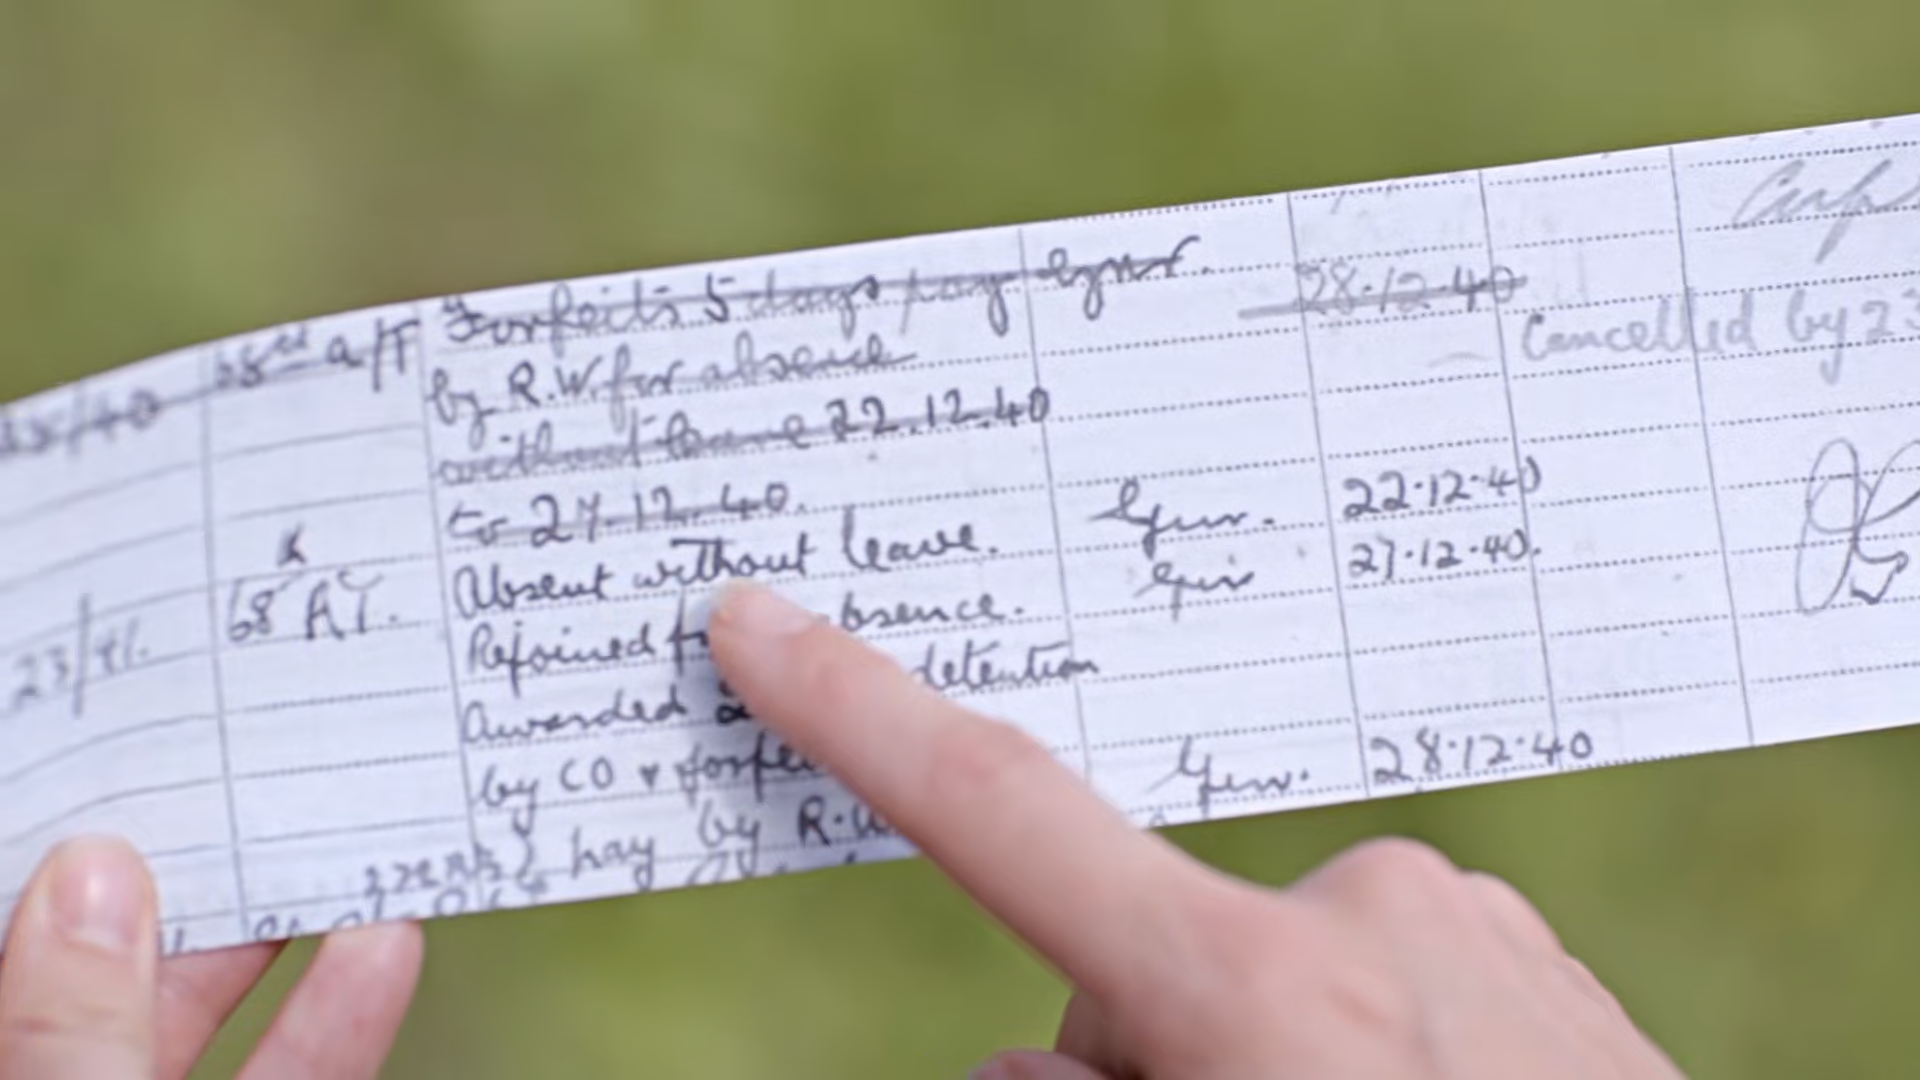 Forfeits 5 days pay Gnr. 28.12.40
by R.W. for absence Cancelled by 23
without leave 22.12.40
to 27.12.40.
Absent without leave. Gnr. 22.12.40
68 A.T. Rejoined absence. Gnr 27.12.40.
23/41. Awarded detention
by CO & Gnr. 28.12.40
pay by R.W.